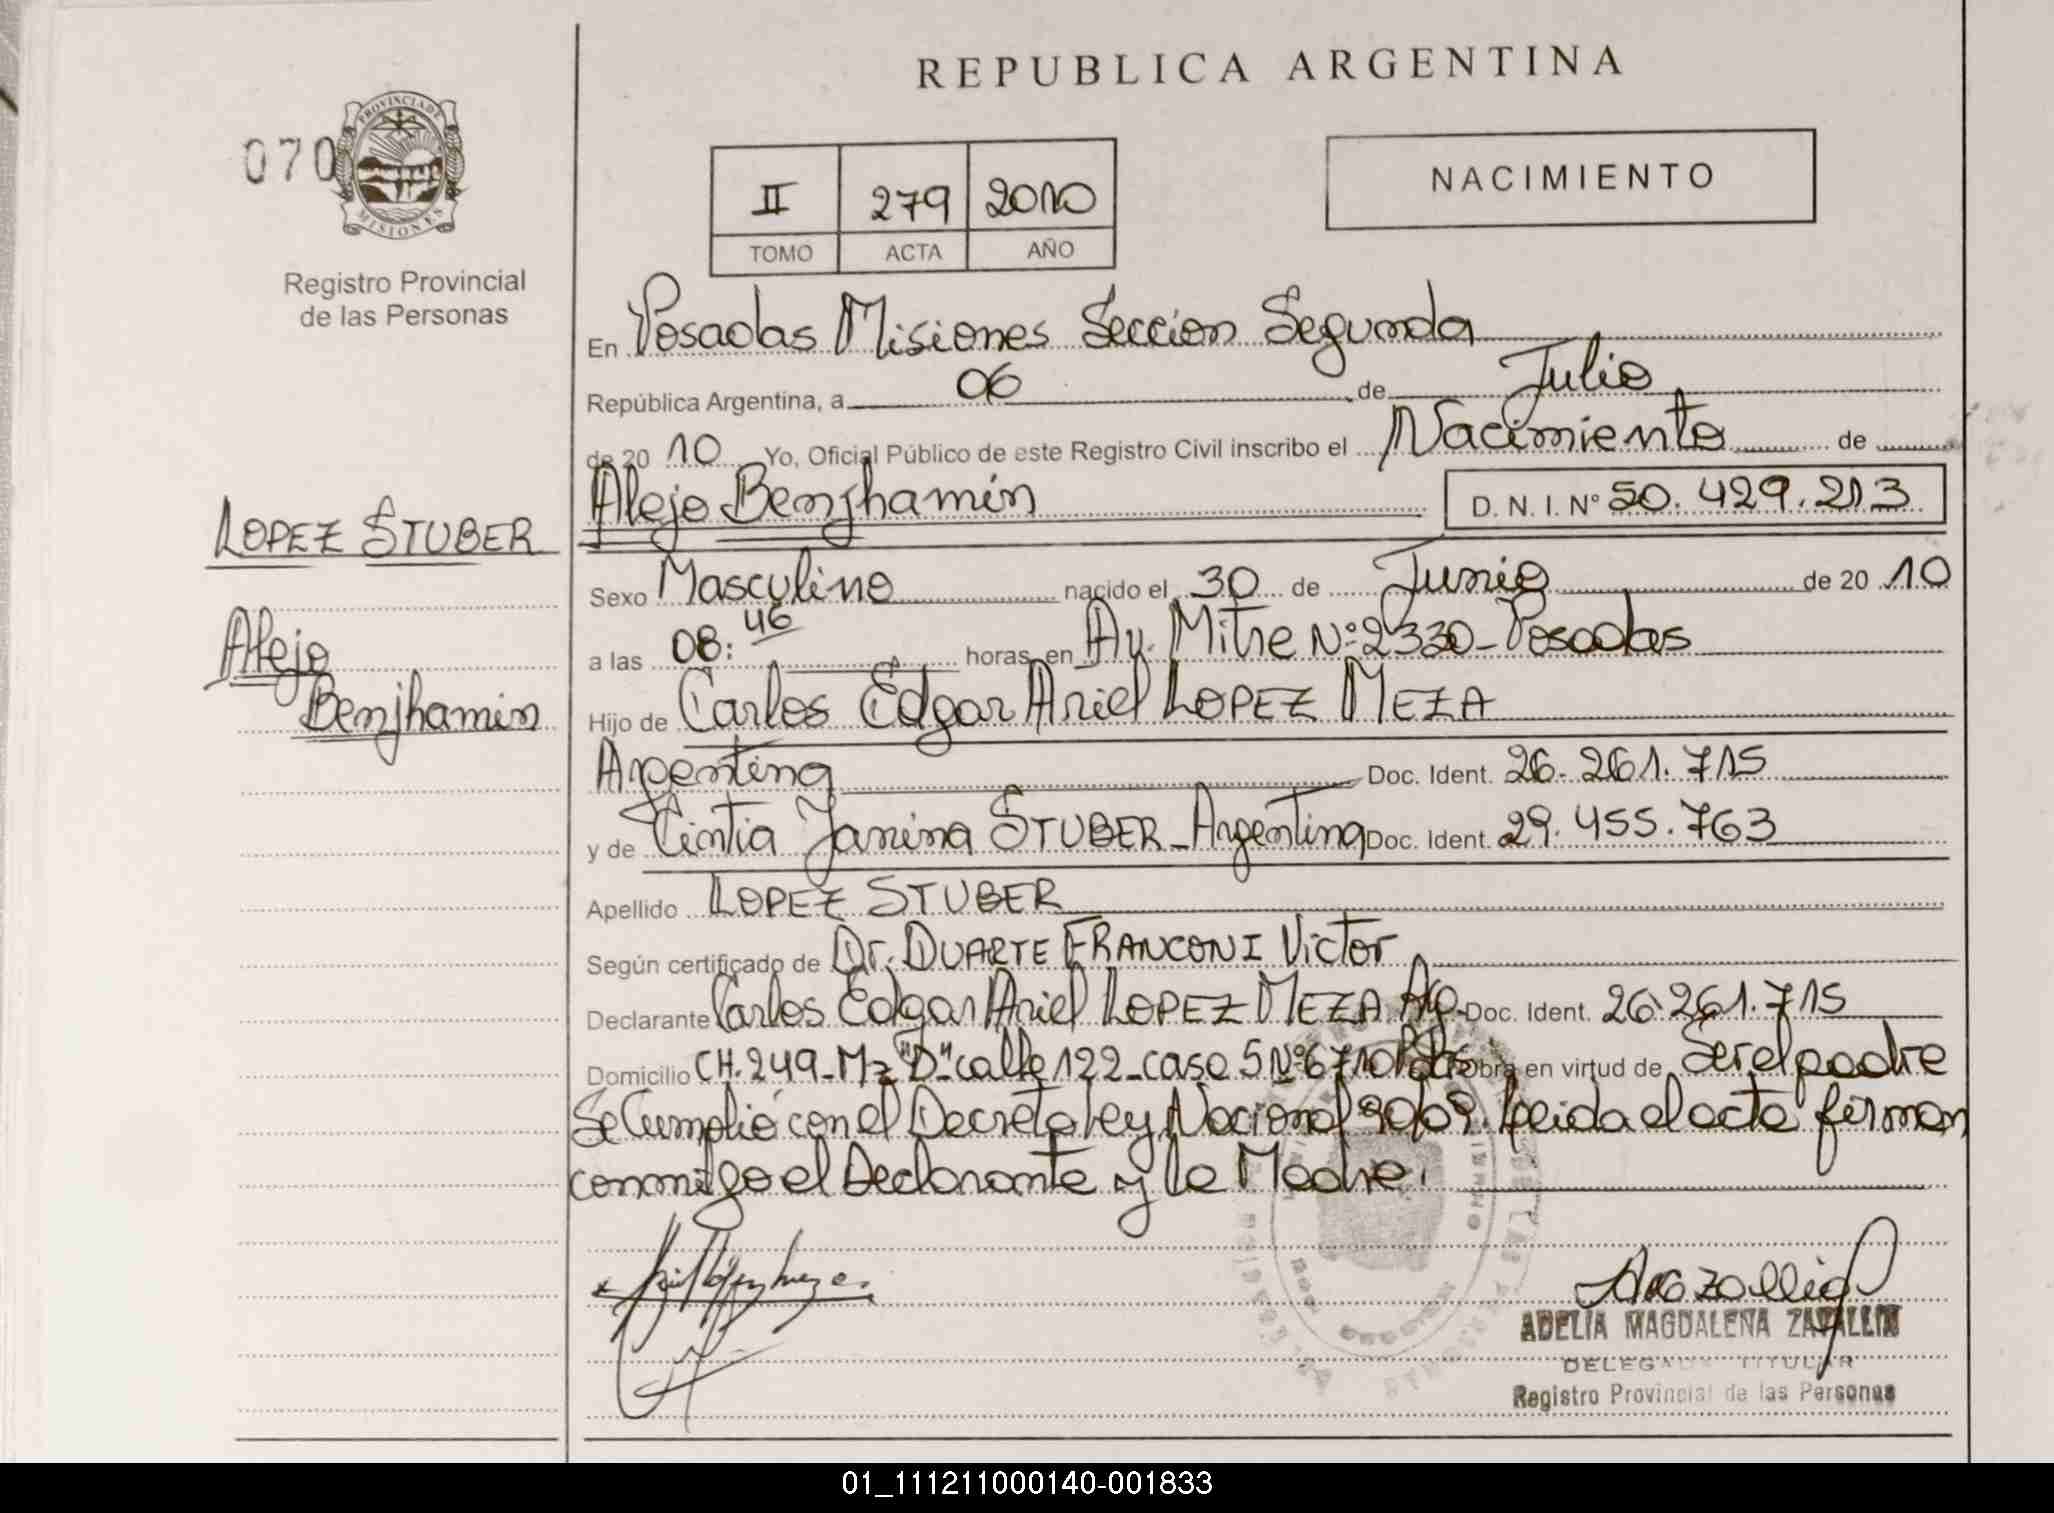 REPUBLICA ARGENTINA
070
PROVINCIA DE
MISIONES
Registro Provincial
de las Personas
II 279 2010
TOMO ACTA AÑO
NACIMIENTO
En Posadas Misiones Seccion Segunda
República Argentina, a 06 de Julio
de 20 10 Yo, Oficial Público de este Registro Civil inscribo el Nacimiento de
Alejo Benjhamin D. N. I. N° 50.429.213
LOPEZ STUBER
Alejo
Benjhamin
Sexo Masculino nacido el 30 de Junio de 20 10
a las 08:46 horas, en Av. Mitre Nº 2330-Posadas
Hijo de Carlos Edgar Ariel LOPEZ MEZA
Argentina Doc. Ident. 26.261.715
y de Cintia Janina STUBER-Argentina Doc. Ident. 29.455.763
Apellido LOPEZ STUBER
Según certificado de Dr. DUARTE FRANCONI Victor
Declarante Carlos Edgar Ariel LOPEZ MEZA Ag. Doc. Ident. 26.261.715
Domicilio CH.249-Mz "D" calle 122-casa 5 Nº 6710 Obra en virtud de Ser el padre
Se Cumplió con el Decreto Ley Nacional Leida el acta firman
conmigo el Declarante y la Madre.
ADELIA MAGDALENA ZAPALLIN
DELEGADA TITULAR
Registro Provincial de las Personas
01_111211000140-001833